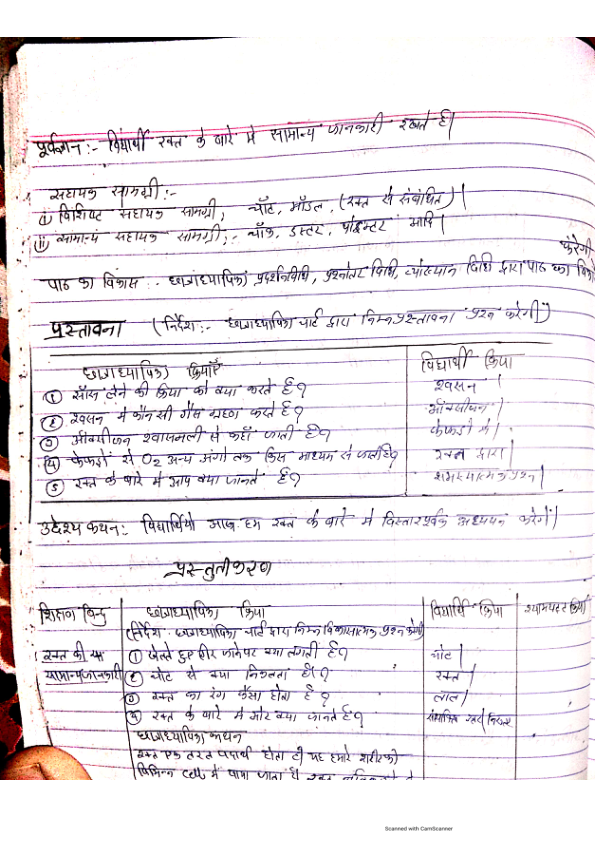 पूर्वज्ञान :- विद्यार्थी रक्त के बारे में सामान्य जानकारी रखते है।
सहायक सामग्री :-
(i) विशिष्ट सहायक सामग्री, चॉट, मॉडल, (रक्त से संबंधित)।
(ii) सामान्य सहायक सामग्री :- चॉक, डस्टर, पॉइन्टर आदि।
पाठ का विकास :- छात्राध्यापिका प्रदर्शनविधि, प्रश्नोत्तर विधि, व्याख्यान विधि द्वारा पाठ का
करेगी
प्रस्तावना (निर्देश :- छात्राध्यापिका चार्ट द्वारा निम्न प्रस्तावना प्रश्न करेगी)
छात्राध्यापिका क्रियाएँ विद्यार्थी क्रिया
① साँस लेने की क्रिया को क्या करते है? श्वसन।
② श्वसन में कौन सी गैस ग्रहण करते है? ऑक्सीजन।
③ ऑक्सीजन श्वासनली से कहाँ जाती है? फेफड़ों में।
④ फेफड़ों से O2 अन्य अंगो तक किस माध्यम से जाती है? रक्त द्वारा।
⑤ रक्त के बारे में आप क्या जानते है? समस्यात्मक प्रश्न।
उद्देश्य कथन :- विद्यार्थियो आज हम रक्त के बारे में विस्तारपूर्वक अध्ययन करेगें।
प्रस्तुतीकरण
शिक्षण बिन्दु छात्राध्यापिका क्रिया विद्यार्थी क्रिया श्यामपट्ट क्रिया
(निर्देश :- छात्राध्यापिका चार्ट द्वारा निम्न विकासात्मक प्रश्न करेगी)
रक्त की ① खेलते हुए गिर जानेपर क्या लगती है? चोट।
सामान्य जानकारी ② चोट से क्या निकलता है? रक्त।
③ रक्त का रंग कैसा होता है? लाल।
④ रक्त के बारे में और क्या जानते है?
छात्राध्यापिका कथन
रक्त एक तरल पदार्थ होता है यह हमारे शरीर की
विभिन्न cell में पाया जाता है
Scanned with CamScanner